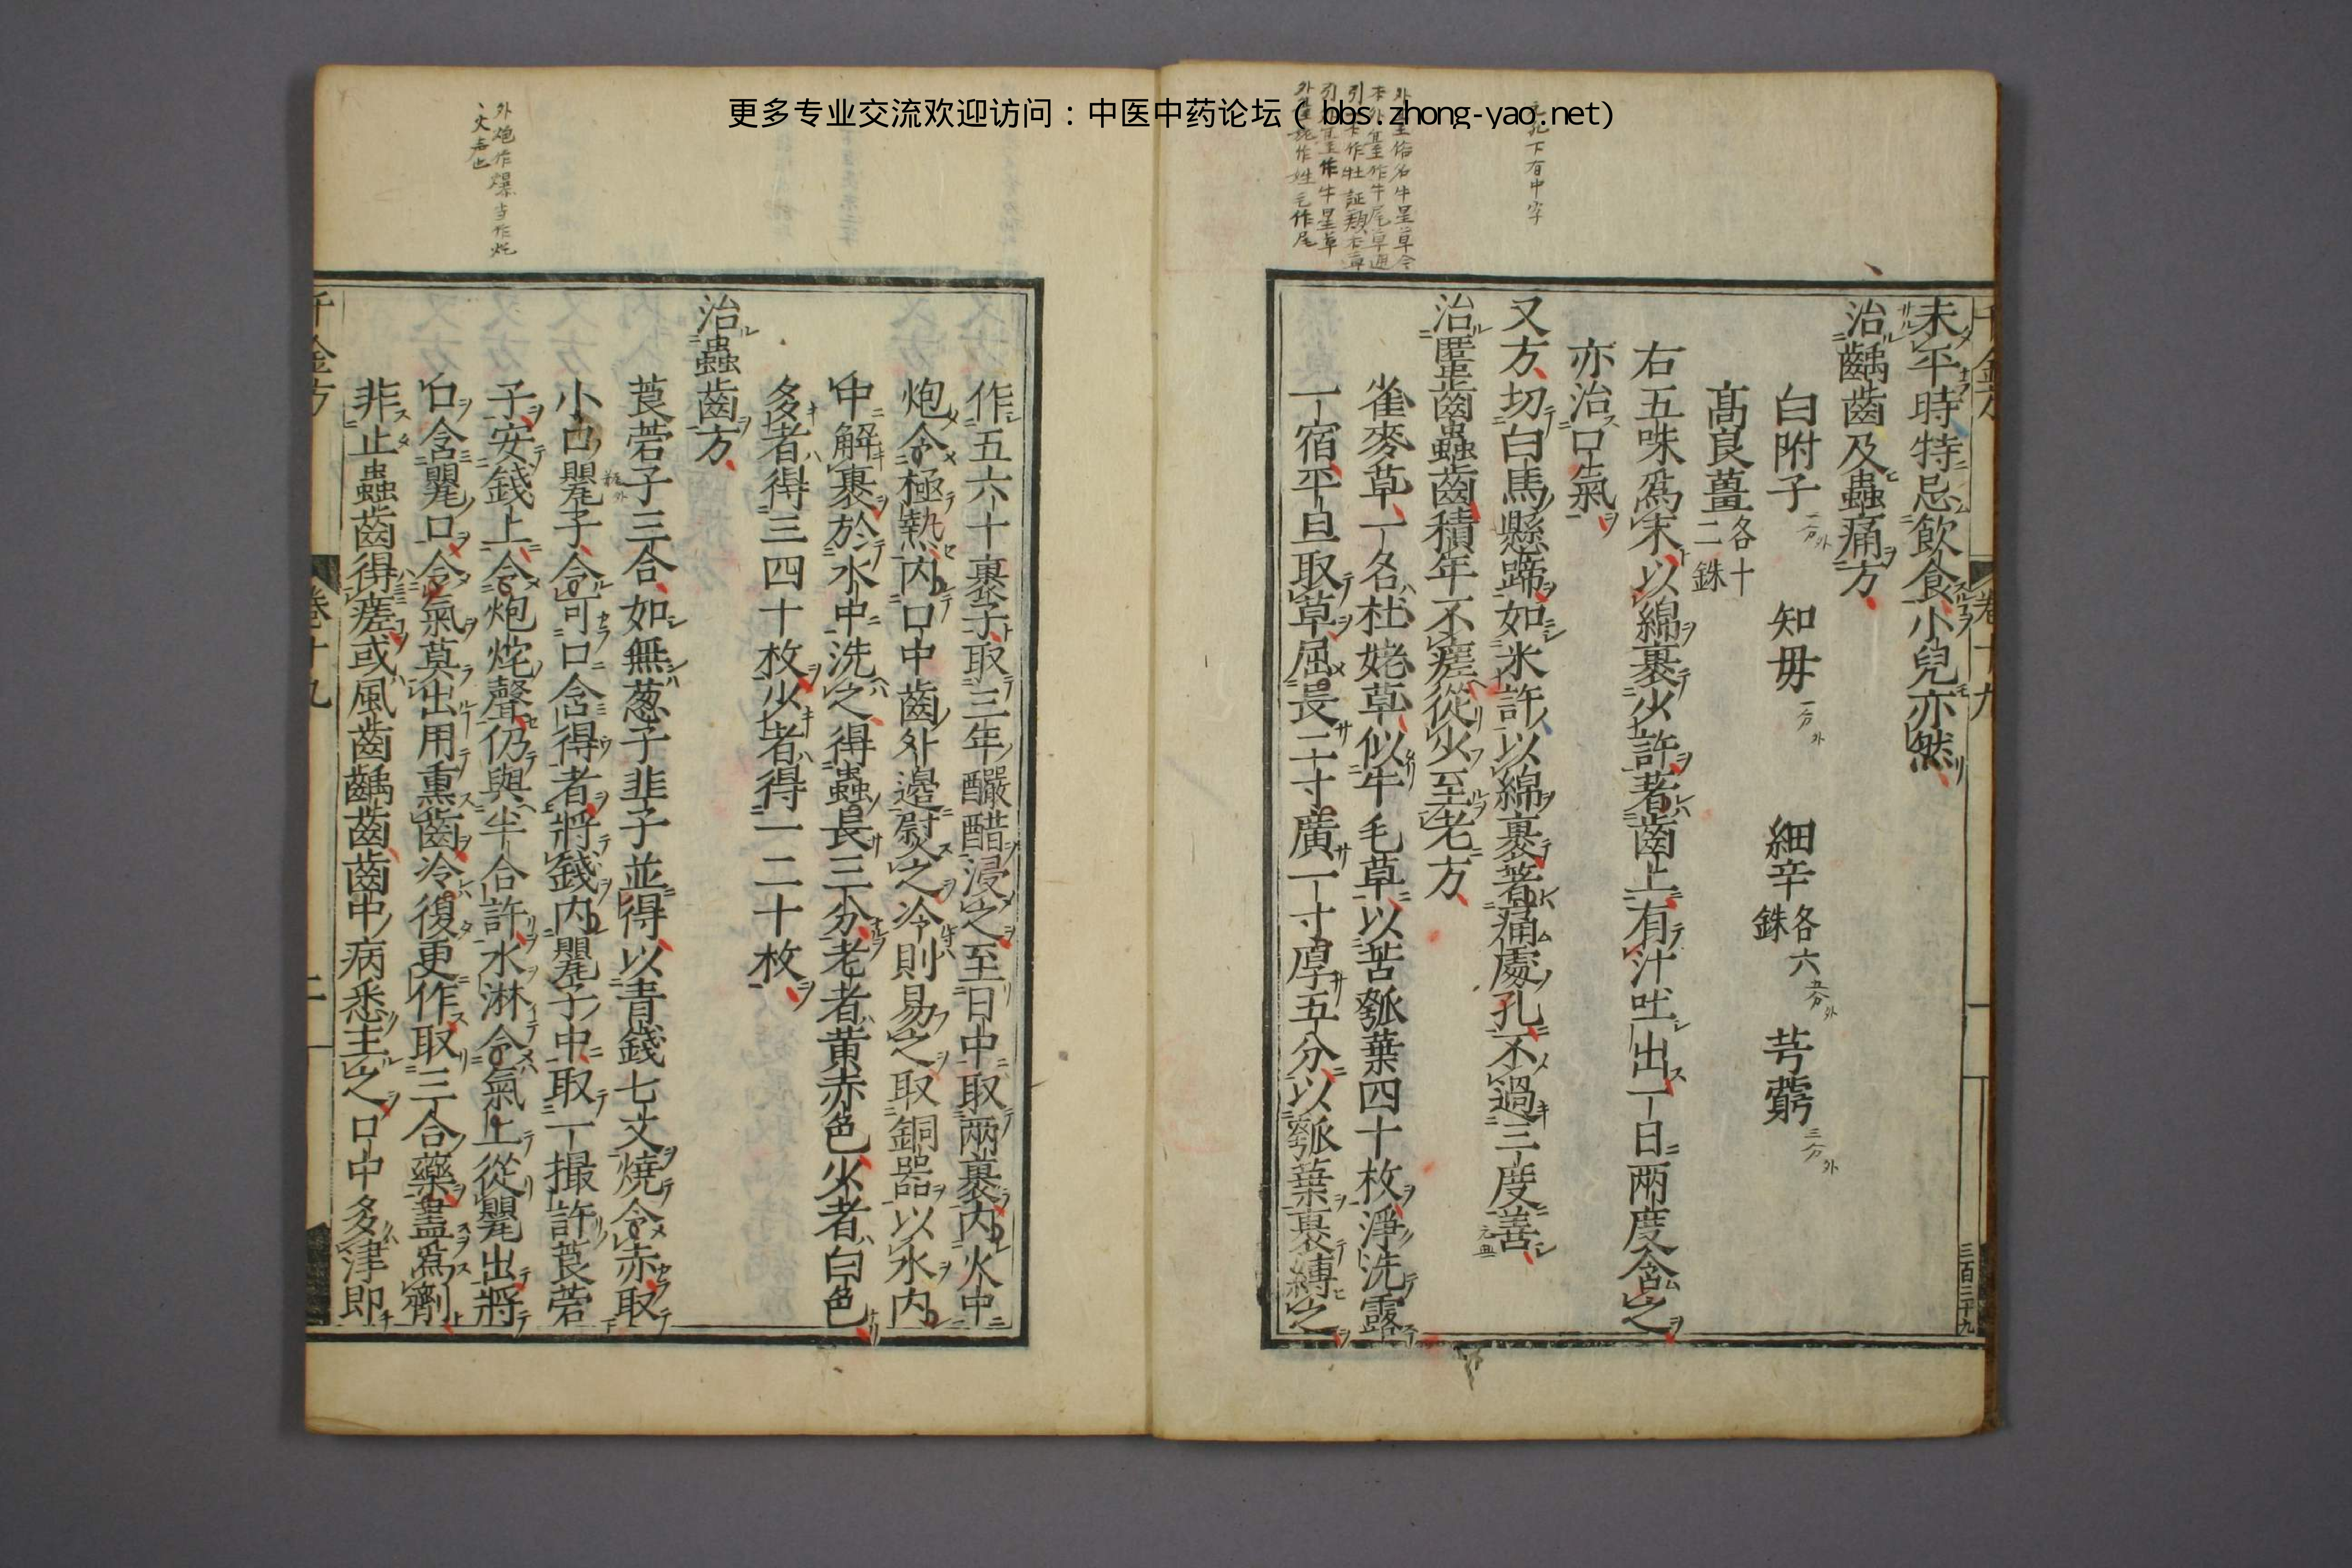 更多专业交流欢迎访问：中医中药论坛（bbs.zhong-yao.net)
未平時特忌飲食小兒亦然
治齲齒及蟲痛方
白附子 知毋 細辛各六銖 芎藭
髙良薑各十二銖
右五味爲末以綿裹少許著齒上有汁吐出一日兩度含之
亦治口氣
又方切白馬懸蹄如米許以綿裹著痛處孔不過三度善
治䘌齒蟲齒積年不瘥從少至老方
雀麥草一名杜姥草似牛毛草以苦瓠葉四十枚淨洗露
一宿平旦取草屈長二寸廣一寸厚五分以瓠葉裹縛之
三百三十九
下有中字
作五六十裹子取三年釅醋浸之至日中取兩裹内火中
炮令極熱内口中齒外邊熨之冷則易之取銅器以水内
中解裹於水中洗之得蟲長三分老者黄赤色少者白色
多者得三四十枚少者得一二十枚
治蟲齒方
莨菪子三合如無葱子韭子並得以青錢七文燒令赤取
小口甖子令可口含得者將錢内甖子中取一撮許莨菪
子安錢上令炮烢聲仍與半合許水淋令氣上從甖出將
口含甖口令氣莫出用熏齒冷復更作取三合藥盡爲劑
非止蟲齒得瘥或風齒齲齒齒中病悉主之口中多津即
千金方 卷十九
外炮作爆当作炝